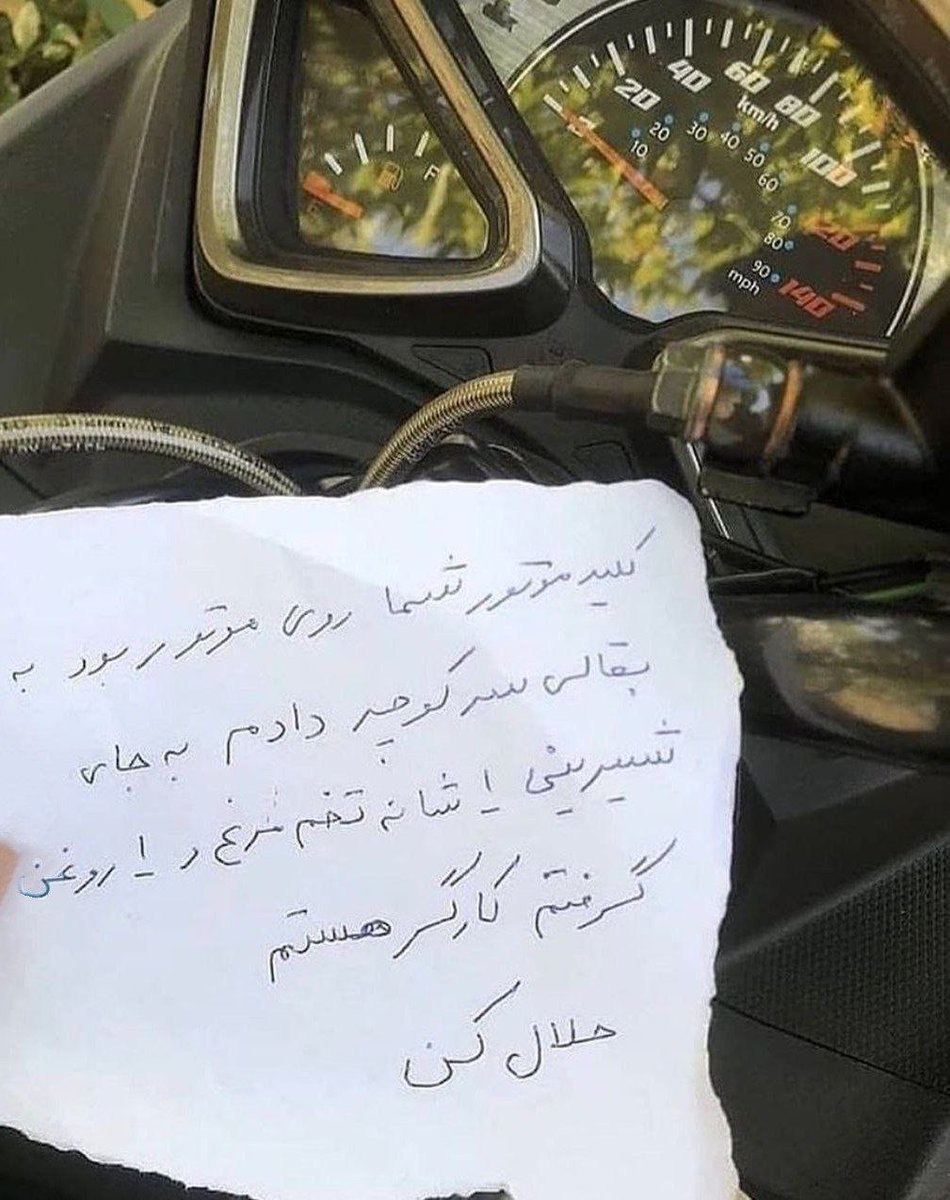 F
20
40
60
80
100
120
140
km/h
10
20
30
40
50
60
70
80
90
mph
کلید موتور شما روی موتور بود به
بقالی سر کوچه دادم به جای
شیرینی ۱ شانه تخم مرغ و ۱ روغن
گرفتم کارگر هستم
حلال کن